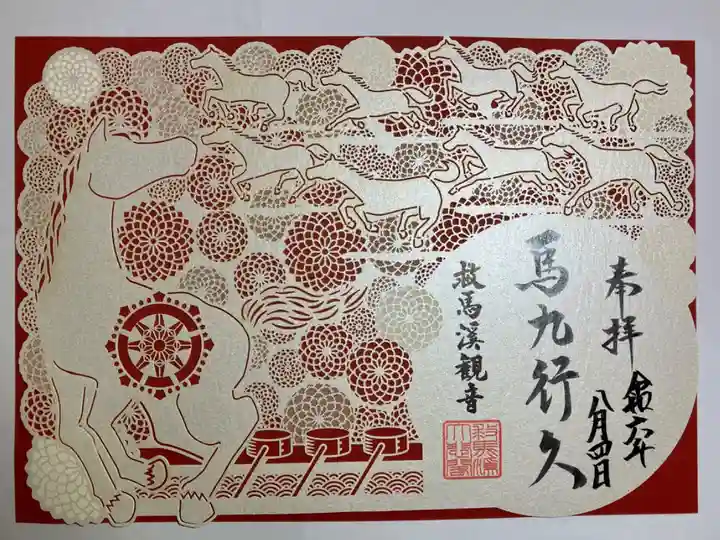 奉拝
令六年
八月四日
馬九行久
救馬溪観音